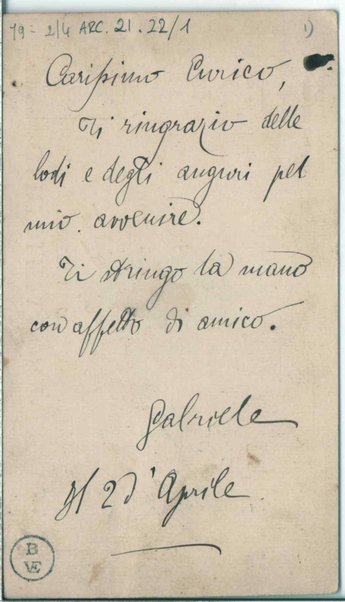 19 - 2/4 ARC. 21. 22/1
1)
Carissimo Enrico,
Ti ringrazio delle
lodi e degli auguri pel
mio avvenire.
Ti stringo la mano
con affetto di amico.
Gabriele
Il 2 d'Aprile
B
VE